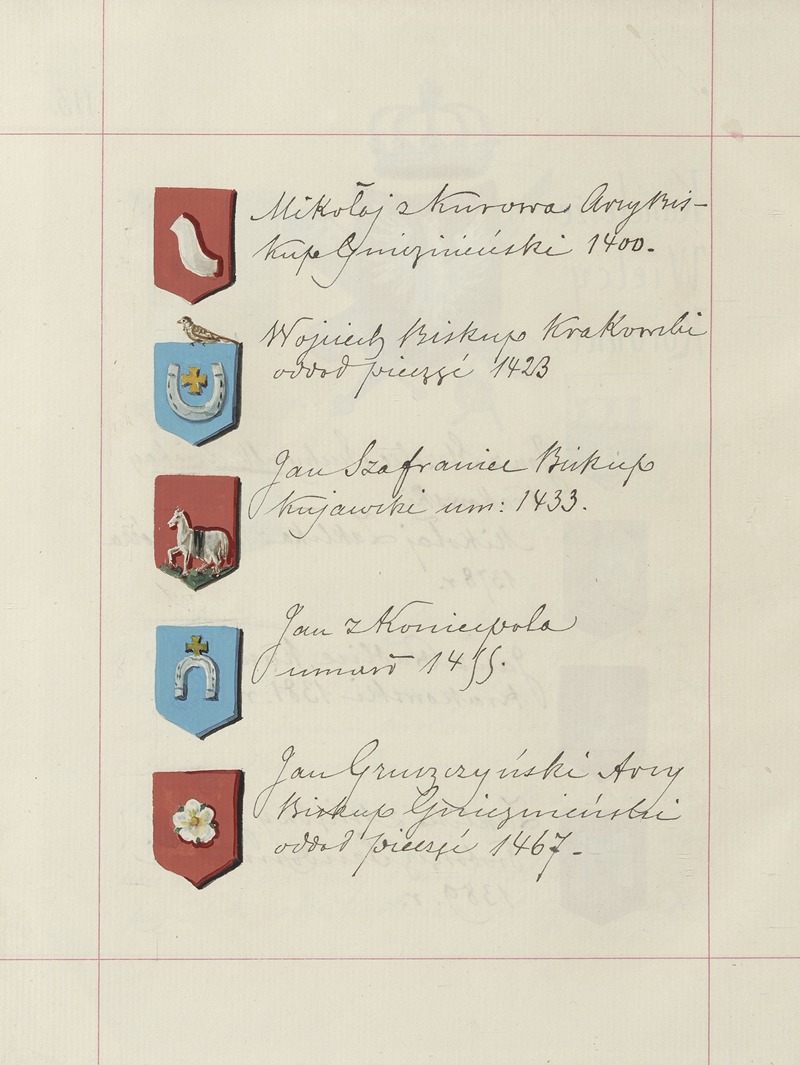 Mikołaj z Kurowa ArcyBis-
kup Gnieznieński 1400.
Wojciech Biskup Krakowski
oddał pieczęć 1423
Jan Szafraniec Biskup
Kujawski um: 1433.
Jan z Koniecpola
umarł 1455.
Jan Gruszczyński Arcy
Biskup Gnieznieński
oddał pieczęć 1467.-